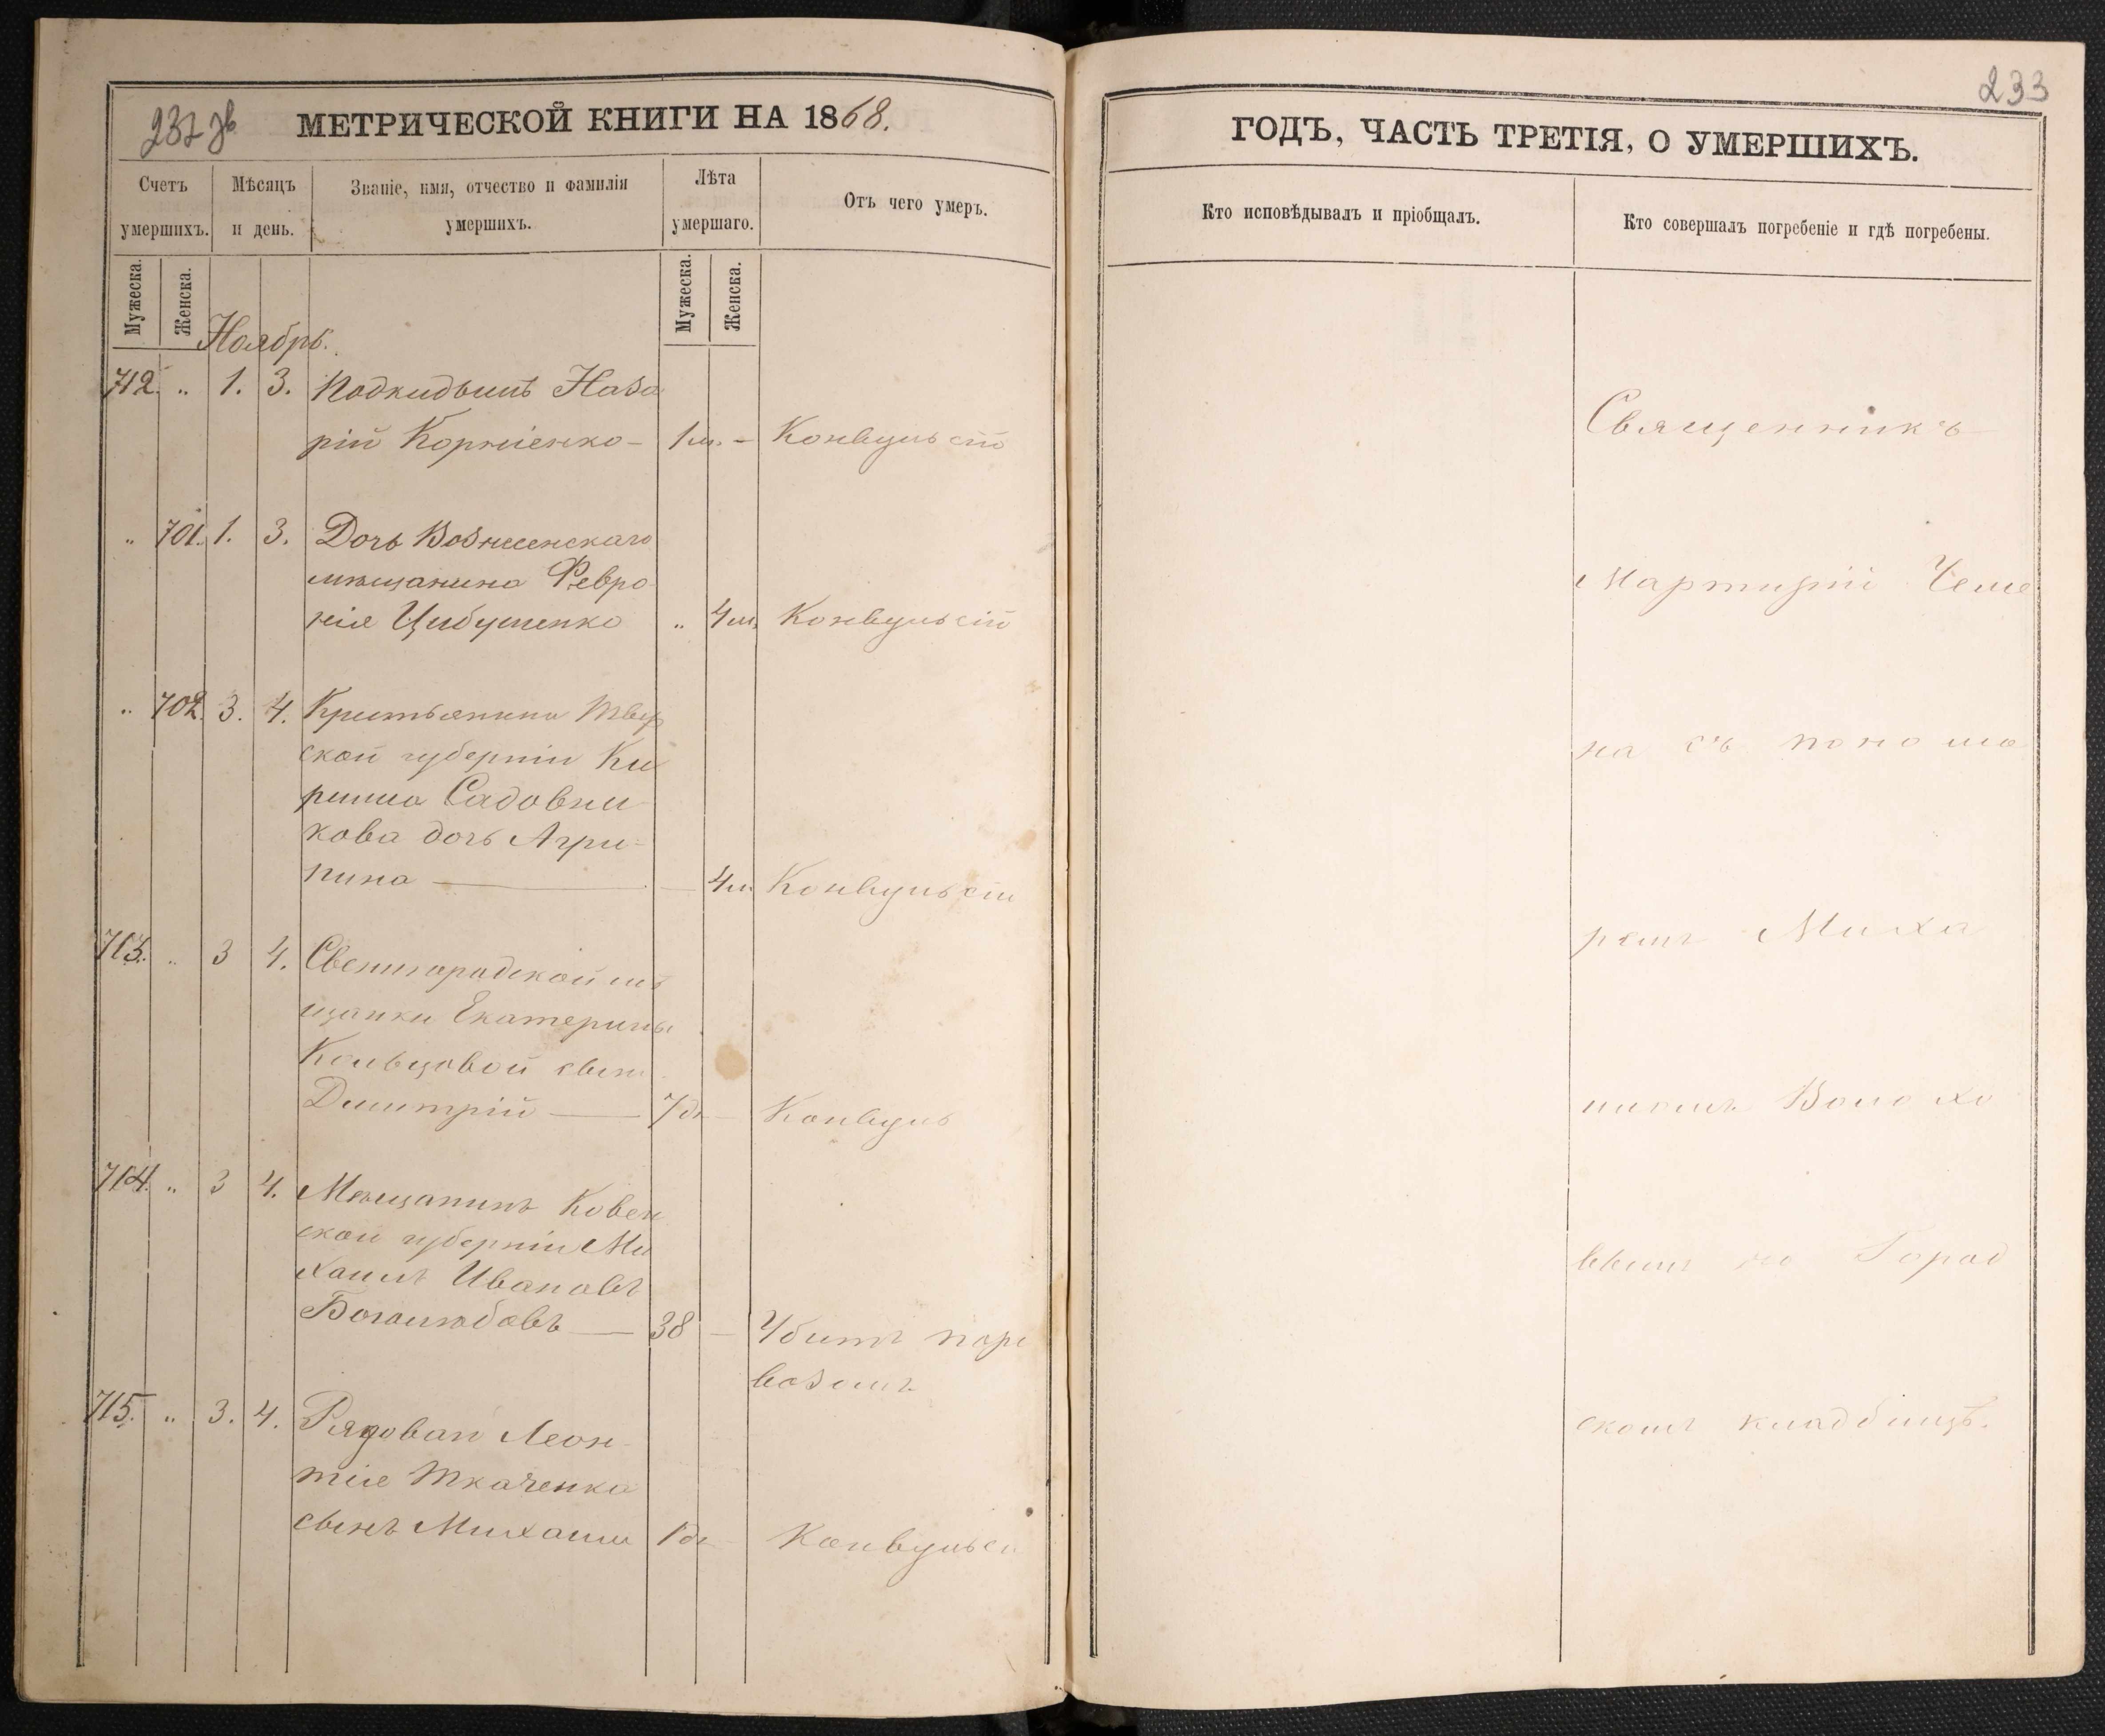 МЕТРИЧЕСКОЙ КНИГИ НА 1868.
Счетъ умершихъ.
Мѣсяцъ и день.
Званіе, имя, отчество и фамилія умершихъ.
Лѣта умершаго.
Отъ чего умеръ.
Мужеска.
Женска.
Мужеска.
Женска.
Ноябрь.
712. " 1. 3. Подкидышъ Наза
рій Корніенко - 1 м. - Конвульсій
" 701. 1. 3. Дочь Вознесенскаго
мѣщанина Февро
нія Цибуленко " 4 м. Конвульсій
" 702. 3. 4. Крестьянина Твер
ской губерніи Ки
рила Садовни
кова дочь Агри-
пина — 4 м. Конвульсіи
713. " 3 4. Свенигородской мѣ
щанки Екатерины
Кольцовой сынъ
Димитрій — 7 дн — Конвуль
714. " 3 4. Мѣщанинъ Ковен
ской губерніи Ми
хаилъ Ивановъ
Боголюбовъ — 38 — Убитъ паро
возомъ
715. " 3. 4. Рядоваго Леон
тія Ткаченка
сынъ Михаилъ 1 дн — Конвульсі
233
ГОДЪ, ЧАСТЬ ТРЕТІЯ, О УМЕРШИХЪ.
Кто исповѣдывалъ и пріобщалъ.
Кто совершалъ погребеніе и гдѣ погребены.
Священникъ
Мартирій Чеме
на съ понома
ремъ Миха
иломъ Волохо
вымъ на Город
скомъ кладбищѣ.